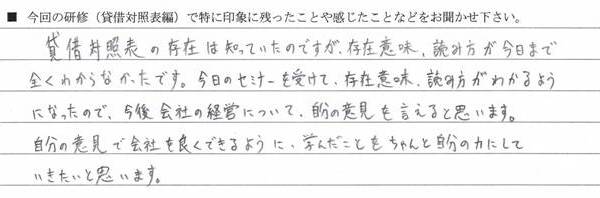 ■ 今回の研修（貸借対照表編）で特に印象に残ったことや感じたことなどをお聞かせ下さい。
貸借対照表の存在は知っていたのですが、存在意味、読み方が今日まで
全くわからなかったです。今日のセミナーを受けて、存在意味、読み方がわかるよう
になったので、今後会社の経営について、自分の意見を言えると思います。
自分の意見で会社を良くできるように、学んだことをちゃんと自分の力にして
いきたいと思います。